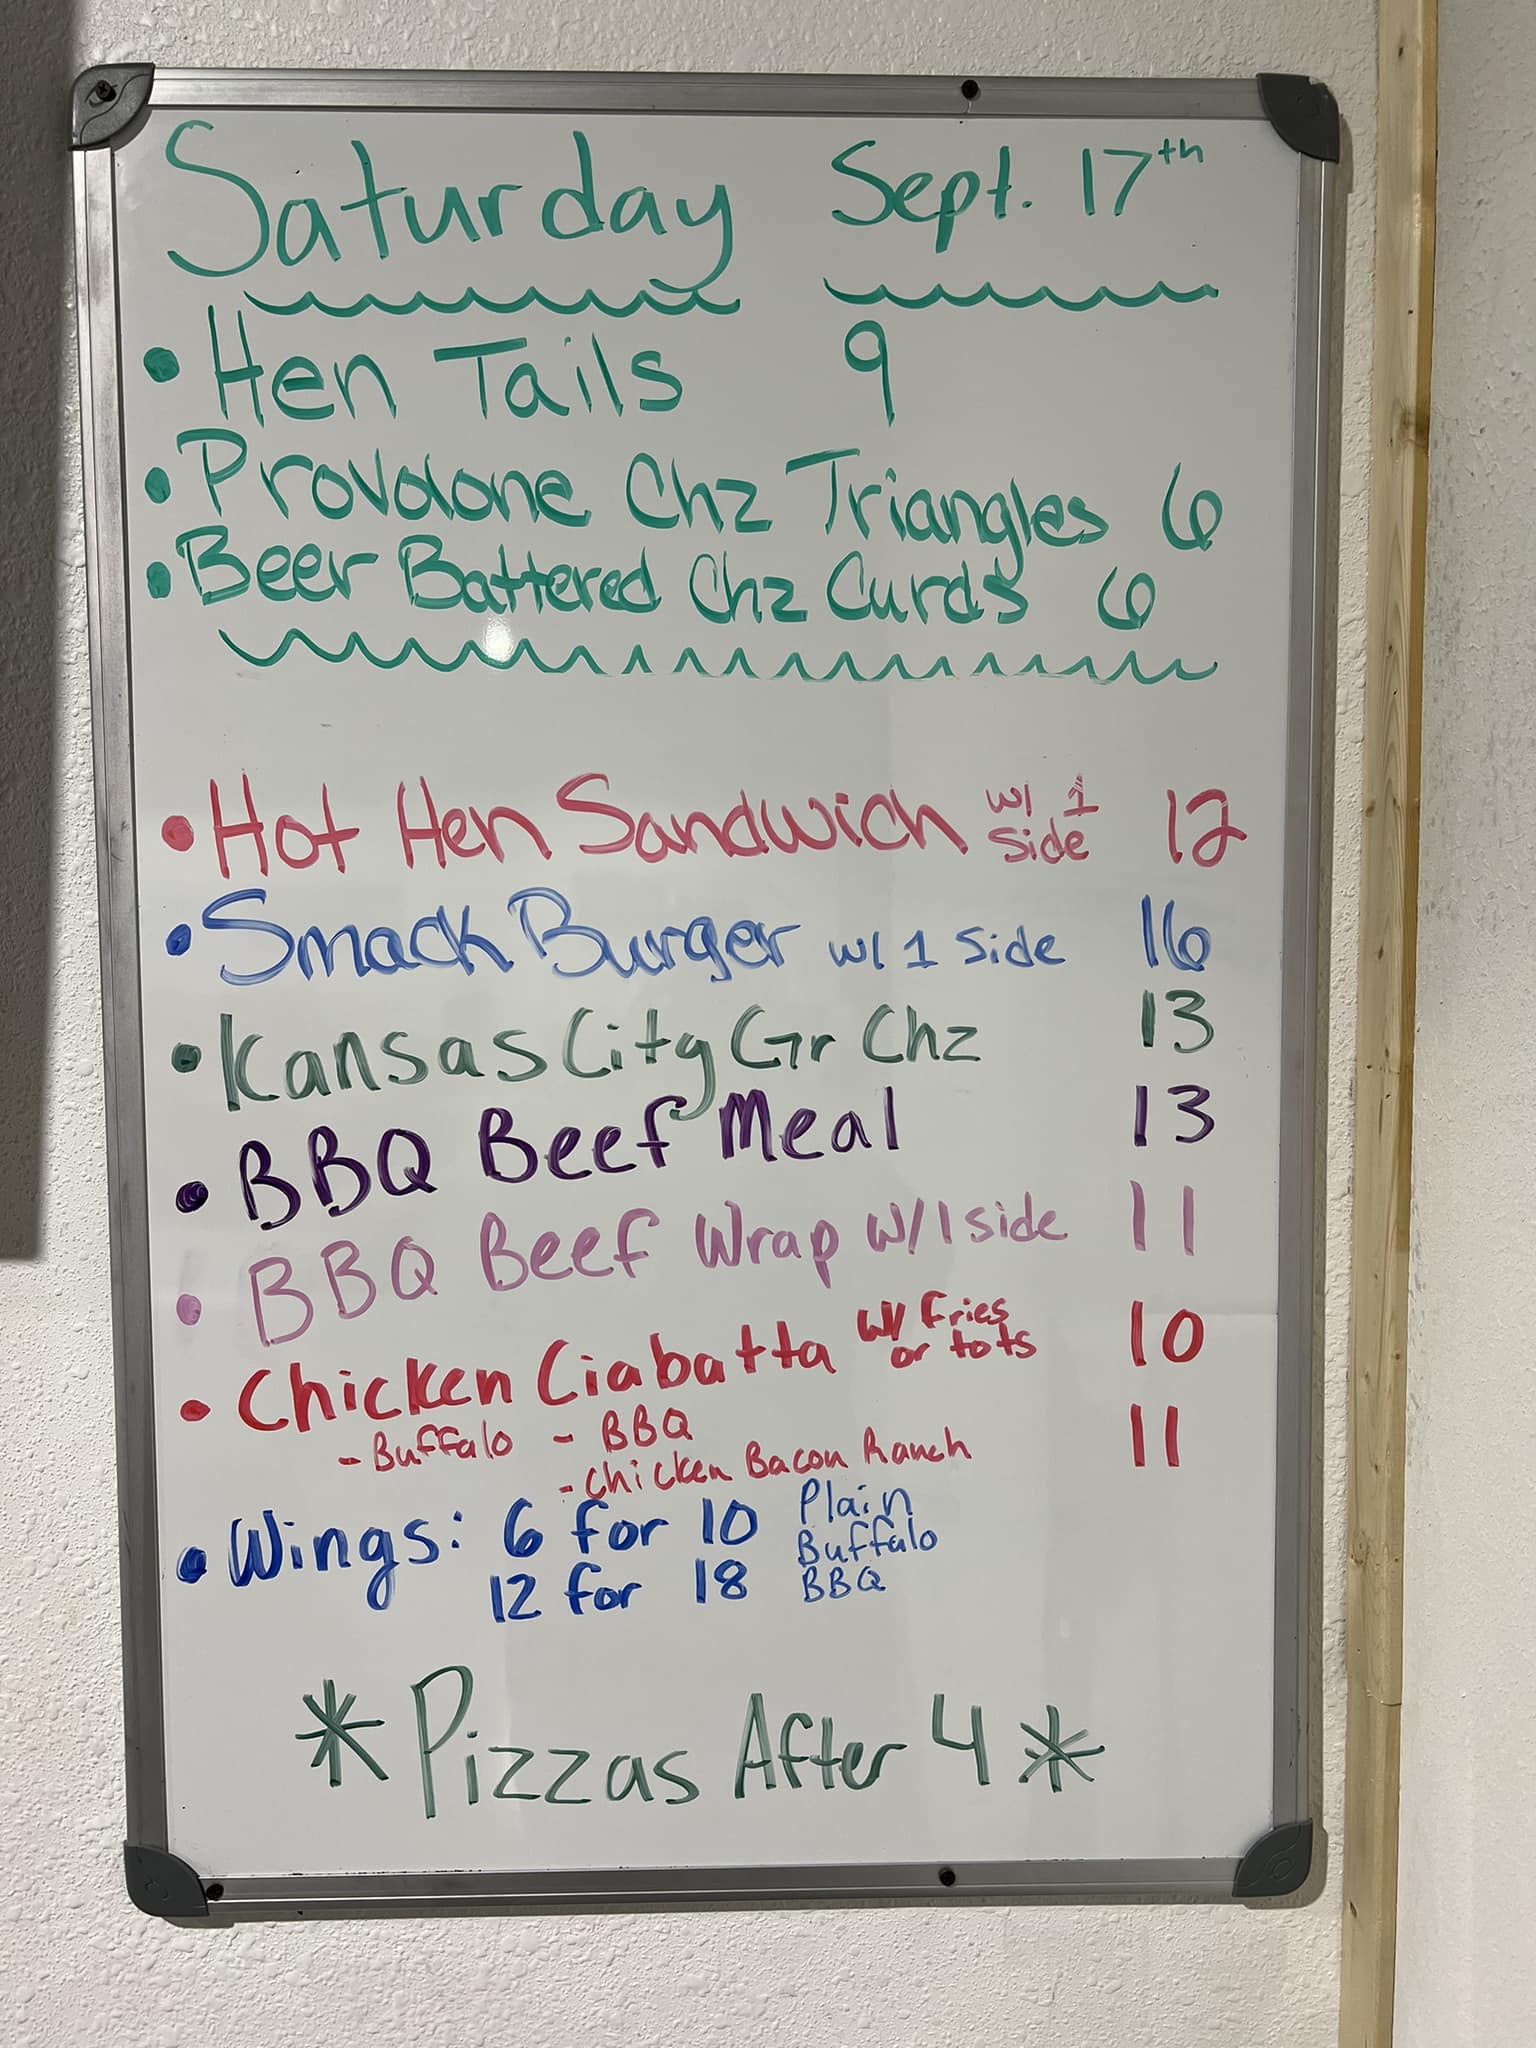 Saturday Sept. 17th
• Hen Tails 9
• Provolone Chz Triangles 6
• Beer Battered Chz Curds 6
• Hot Hen Sandwich w/ 1 Side 12
• Smack Burger w/ 1 Side 16
• Kansas City Gr Chz 13
• BBQ Beef Meal 13
• BBQ Beef Wrap w/ 1 side 11
• Chicken Ciabatta w/ Fries or tots 10
- Buffalo - BBQ
- Chicken Bacon Ranch 11
• Wings: 6 for 10 Plain
Buffalo
12 for 18 BBQ
* Pizzas After 4 *